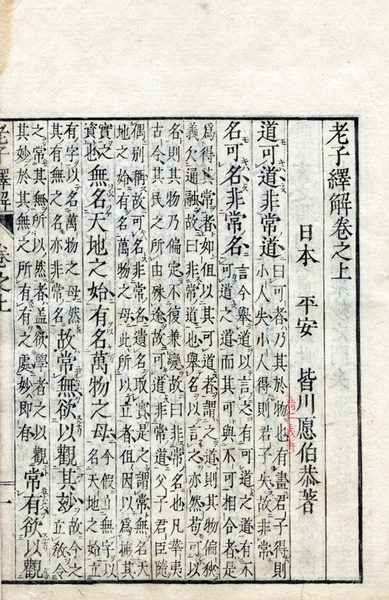 老子繹解卷之上
日本 平安 皆川愿伯恭著
道可道非常道
曰可者乃其於物也有盡君子得則
小人失小人得則君子失故非常
名可名非常名
言今擧道以言之有可道之道有不
可道之道而其可與不可相合者是
爲得常者如但以其可道者謂之道則其物偏狹
義欠通融故曰非常道也擧名以言之亦然苟可以
名則其物乃偏定不彼兼變故曰非常名也凡華夷
古今其民之所由殊途故可道非常道父子君臣隨
偶別稱故可名非常名遺名取實是之謂常無名天
地之始有名萬物之母此所以立者但因以爲概其
實之
資也
無名天地之始有名萬物之母
今假立無字以
名天地之始立
有字以名萬物之母然
其有無之名亦非常名
故常無欲以觀其妙
之常其無所以然者盖欲學者之以觀
其妙於其無之所有有之處妙卽有
常有欲以觀
老子繹解 卷之上 一